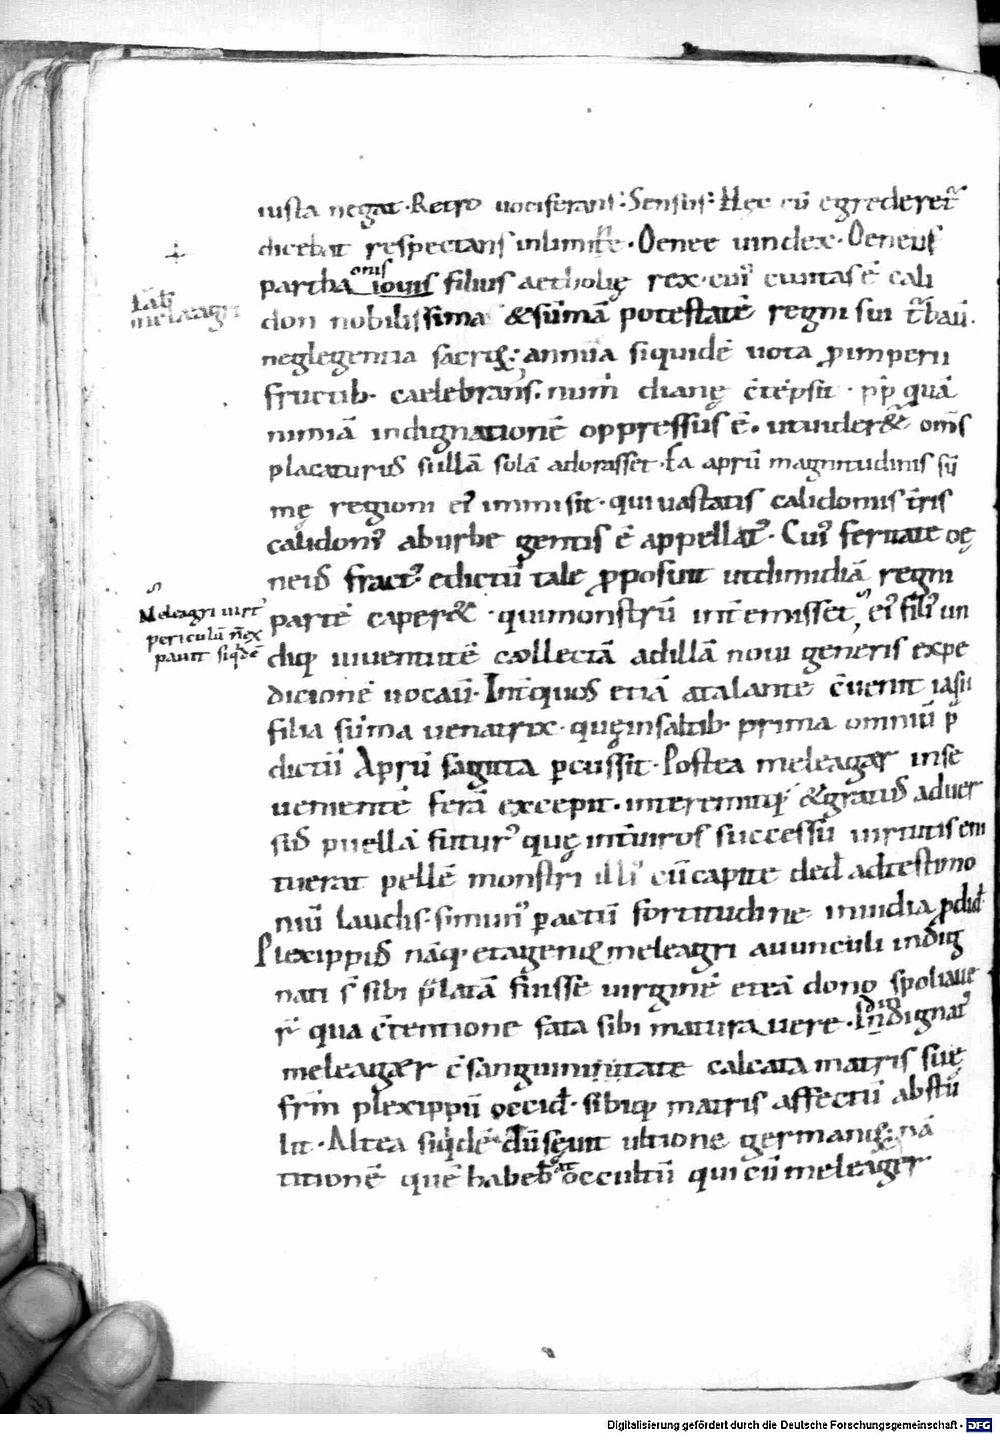 iusta negat. Retro uociferans: Sensus: Hęc cū egrederet᷑
dicebat respectans inlimite. Oenee uindex. Oeneus
fab̄
meleagri
parthaonis iouis filius aetholię rex. cui᷒ ciuitas ē cali
don nobilissima &sūmā potestatē regni sui
neglegentia annua siquidē uota ꝓimperii
fructib. caelebrans. num̄ dianę
nimiā indignationē oppressus ē. utuider& om̄s
placaturus sullā solā adorasset. Ea aprū magnitudinis
mę regioni ei᷒ immisit. qui uastatis calidoniis t̄ris
calidoni᷒ aburbe gentis ē appellat᷒. Cui᷒ feritate oę
neus fract᷒ edictū tale ꝓposuit utdimidiā regni
Meleagri uirt᷒
periculū
pauit siqdē
partē caper& quimonstrū int̄emisset, ei᷒ fili᷒ un
diq iuuentutē collectā adillā noui generis expe
dicionē uocau. Int̄quos etiā atalante c̄uenit iasii
filia sūma uenatrix. quęinsaltib. prima omniū p̄
dictū Aprū sagitta ꝑcussit. Postea meleager inse
uenientē ferā excepit. interemitq &gratus aduer
sus puellā futur᷒ quę int̄uiros successū uirtutis em
tuerat pellē monstri illi᷒ cūcapite ded adtestimo
niū laudis. simun᷒ ꝑactū fortitudine inuidia ꝓdid
Plexippus nāq etagenor meleagri auunculi indig
nati s̄ sibi p̄latā fuisse uirginē eteā dono spoliaue
r̄ qua c̄tentione fata sibi maturauere. Indignat᷒
meleager c̄sanguinitate calcata matris suę
fr̄m plexippū occid. sibiq matris affectū abstu
lit. Altea siqdē dū sęuit ultione germani
titionē quē habeb̄at occultū qui cū meleager